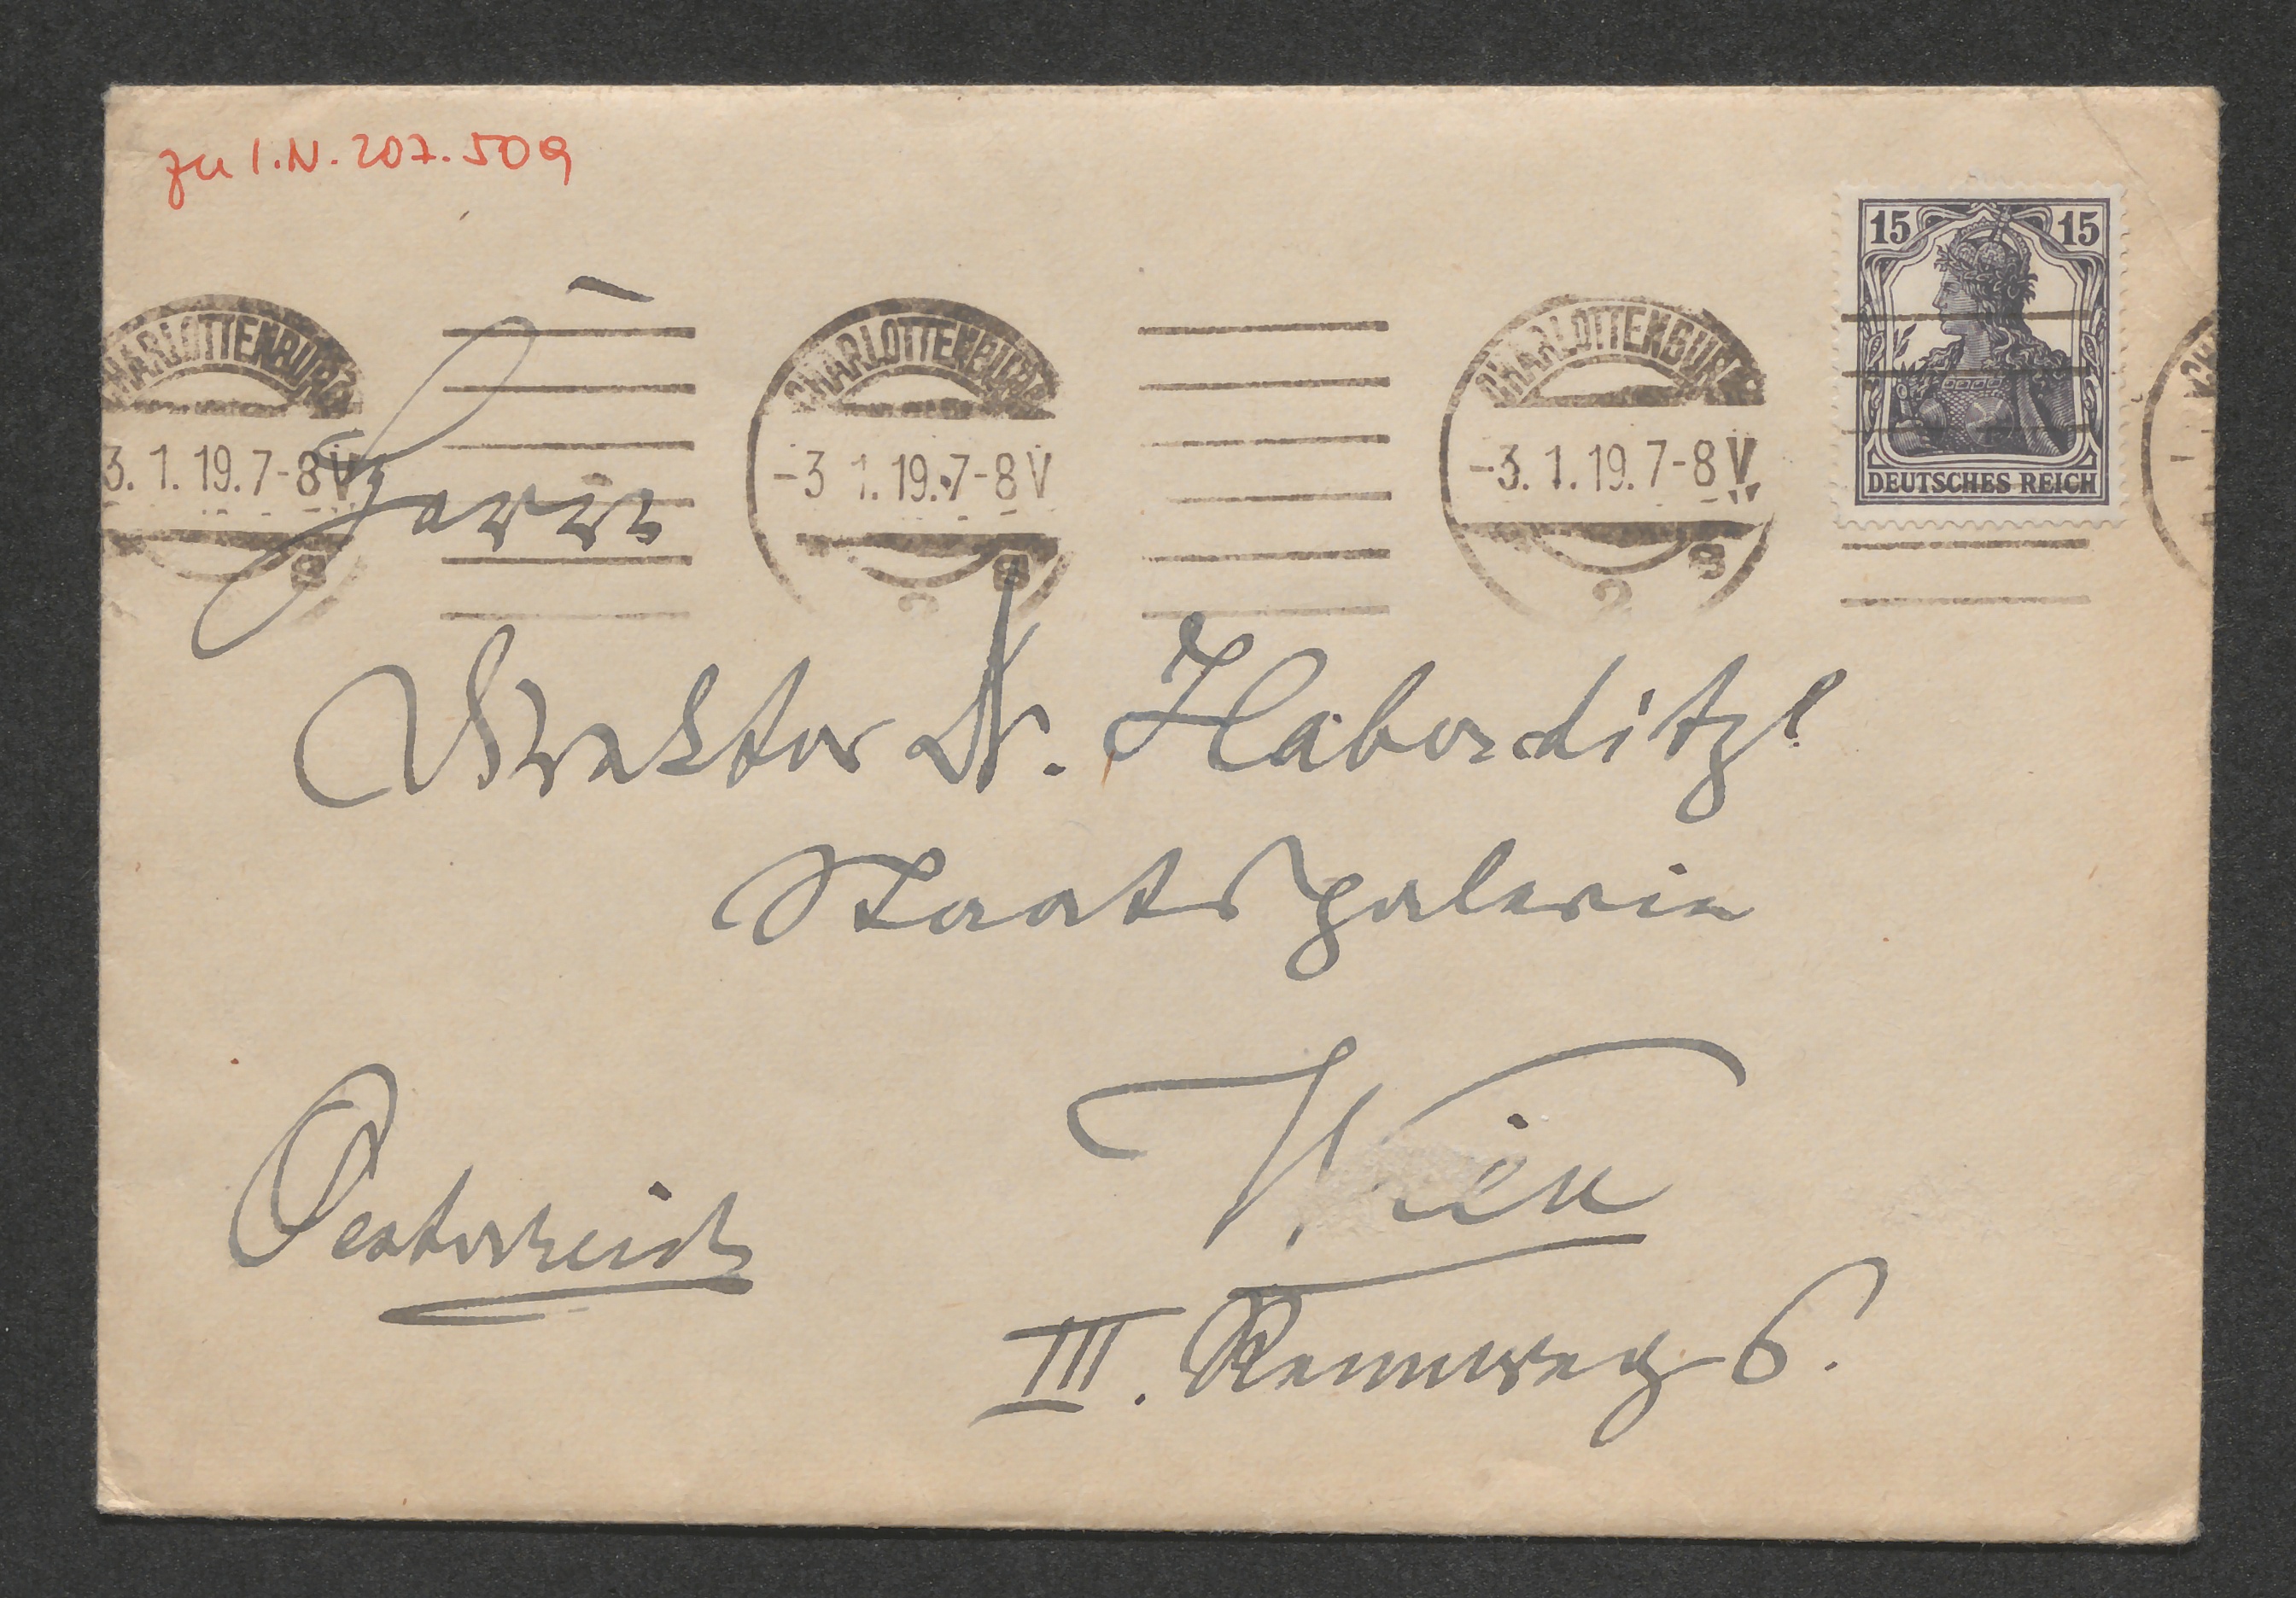 zu I.N. 207.509
15 15
DEUTSCHES REICH
CHARLOTTENBURG
3. 1. 19. 7-8 V
CHARLOTTENBURG
-3 1. 19. 7-8 V
2
CHARLOTTENBURG
-3. 1. 19. 7-8 V.
2
Herrn
Direktor Dr. Haberditzl
Staatsgalerie
Wien
Oesterreich
III. Rennweg 6.